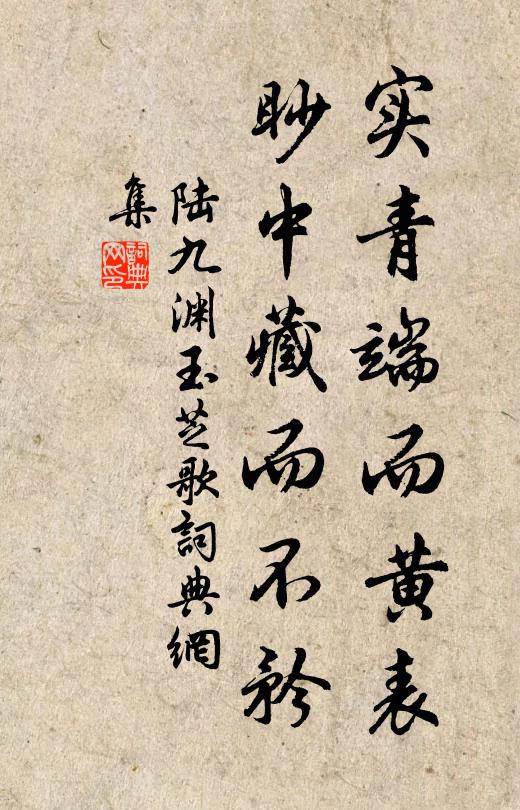 实青端而黄表
眇中藏而不矜
陆九渊玉芝歌詞典網
集
詞典
网印